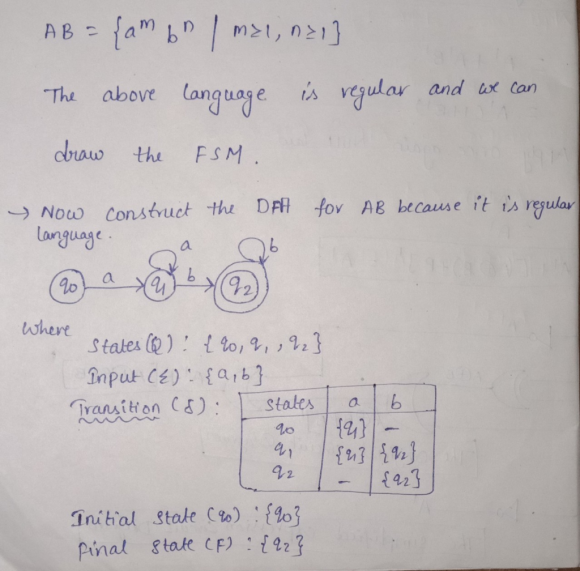 AB = {a^m b^n | m≥1, n≥1}
The above language is regular and we can
draw the FSM.
→ Now construct the DFA for AB because it is regular
language.
a b
q0 a q1 b q2
Where
States (Q) : {q0, q1, q2}
Input (Σ) : {a, b}
Transition (δ) :
States a b
q0 {q1} -
q1 {q1} {q2}
q2 - {q2}
Initial state (q0) : {q0}
Final state (F) : {q2}